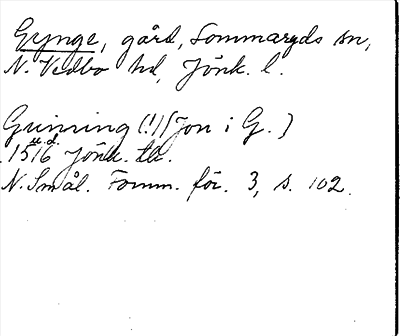 Gynge, gård, Sommaryds sn,
N. Vedbo hd, Jönk. l.
Grinring (!) (Jon i G.)
u.d.
1516 Jönk. tb.
N. Smål. Fornm. för. 3, s. 102.